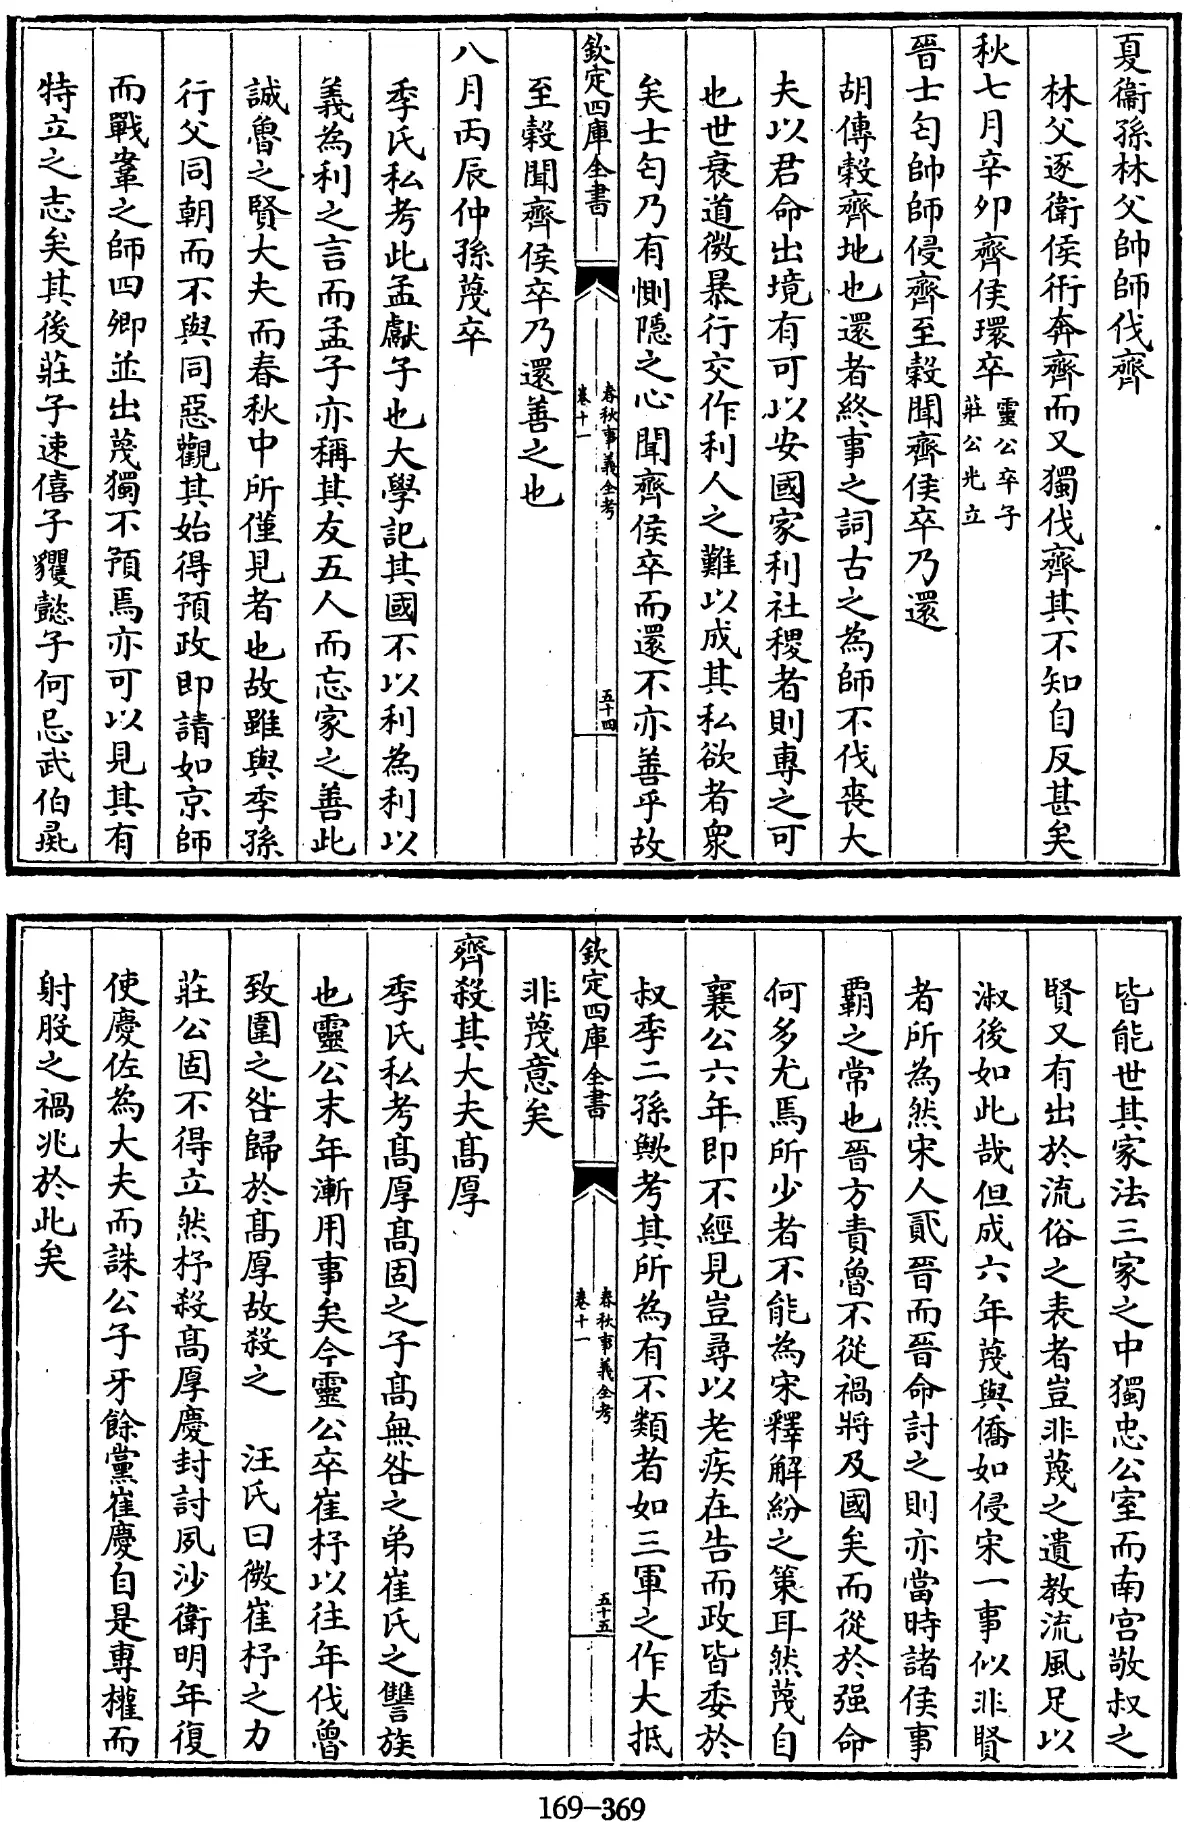 夏衞孫林父帥師伐齊
林父逐衛侯衎奔齊而又獨伐齊其不知自反甚矣
秋七月辛夘齊侯環卒靈公卒子莊公光立
晉士匄帥師侵齊至穀聞齊侯卒乃還
胡傳穀齊地也還者終事之詞古之為師不伐喪大
夫以君命出境有可以安國家利社稷者則專之可
也世衰道微暴行交作利人之難以成其私欲者衆
矣士匄乃有惻隠之心聞齊侯卒而還不亦善乎故
欽定四庫全書
春秋事義全考
卷十一
五十四
至穀聞齊侯卒乃還善之也
八月丙辰仲孫蔑卒
季氏私考此孟獻子也大學記其國不以利為利以
義為利之言而孟子亦稱其友五人而忘家之善此
誠魯之賢大夫而春秋中所僅見者也故雖與季孫
行父同朝而不與同惡觀其始得預政即請如京師
而戰鞌之師四卿並出蔑獨不預焉亦可以見其有
特立之志矣其後莊子速僖子貜懿子何忌武伯彘
皆能世其家法三家之中獨忠公室而南宫敬叔之
賢又有出於流俗之表者豈非蔑之遺教流風足以
淑後如此哉但成六年蔑與僑如侵宋一事似非賢
者所為然宋人貳晉而晉命討之則亦當時諸侯事
霸之常也晉方責魯不從禍將及國矣而從於强命
何多尤焉所少者不能為宋釋解紛之策耳然蔑自
襄公六年即不經見豈尋以老疾在告而政皆委於
叔季二孫歟考其所為有不類者如三軍之作大抵
欽定四庫全書
春秋事義全考
卷十一
五十五
非蔑意矣
齊殺其大夫髙厚
季氏私考髙厚髙固之子髙無咎之弟崔氏之讐族
也靈公末年漸用事矣今靈公卒崔杼以往年伐魯
致圍之咎歸於髙厚故殺之　汪氏曰微崔杼之力
莊公固不得立然杼殺髙厚慶封討夙沙衛明年復
使慶佐為大夫而誅公子牙餘黨崔慶自是專權而
射股之禍兆於此矣
169-369